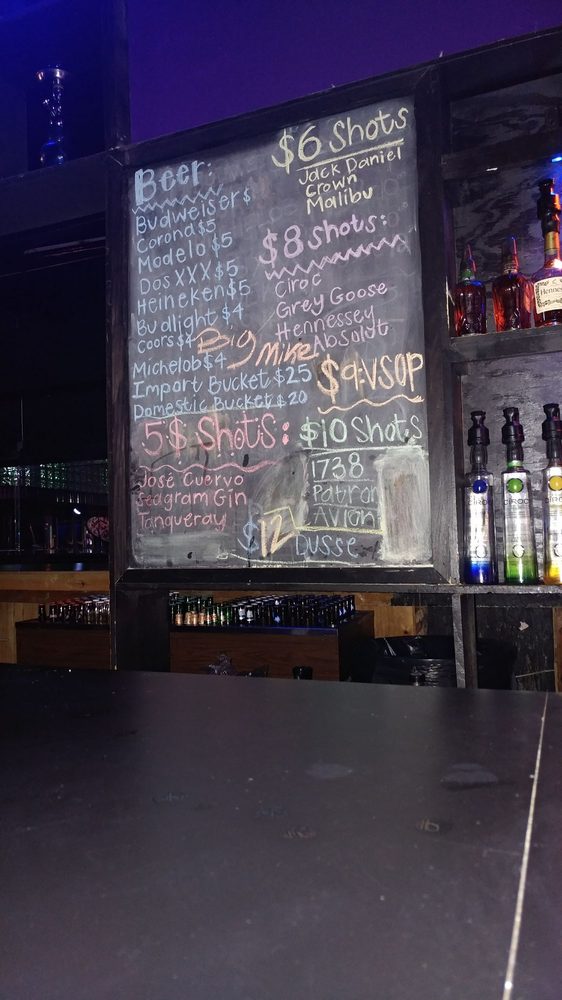 Beer:
Budweiser $
Corona $5
Modelo $5
Dos XXX $5
Heineken $5
Budlight $4
Coors $4
Michelob $4
Import Bucket $25
Domestic Bucket $20
Big Mike
5$ Shots:
José Cuervo
Seagram Gin
Tanqueray
$6 Shots
Jack Daniel
Crown
Malibu
$8 Shots:
Ciroc
Grey Goose
Hennessey
Absolut
$9:VSOP
$10 Shots
1738
Patron
Avion
$12
Dusse
Hennessy
CIROC
CIROC